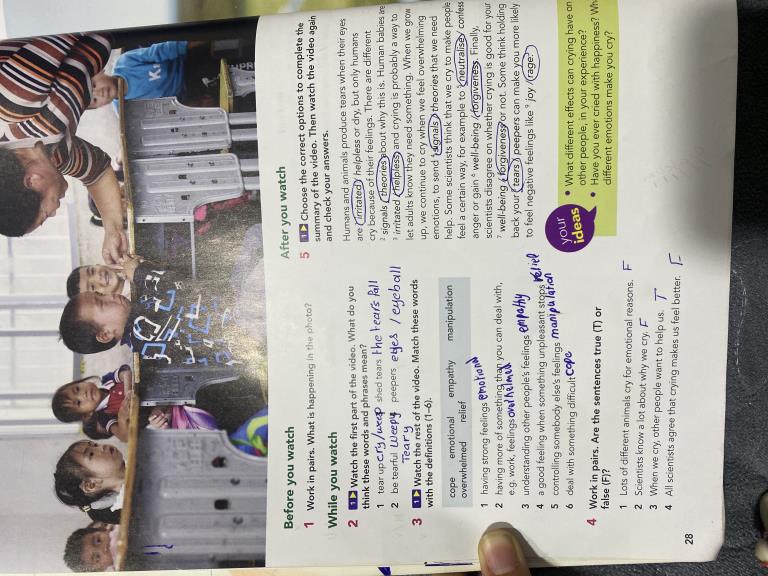 Before you watch
1 Work in pairs. What is happening in the photo?
While you watch
2 1 Watch the first part of the video. What do you
think these words and phrases mean?
1 tear up cry/weep shed tears the tears fall
2 be tearful weepy peepers eyes / eyeball
Teary
3 1 Watch the rest of the video. Match these words
with the definitions (1–6).
cope emotional empathy manipulation
overwhelmed relief
1 having strong feelings emotional
2 having more of something than you can deal with,
e.g. work, feelings overhelmed
3 understanding other people's feelings empathy
4 a good feeling when something unpleasant stops relief
5 controlling somebody else's feelings manipulation
6 deal with something difficult cope
4 Work in pairs. Are the sentences true (T) or
false (F)?
1 Lots of different animals cry for emotional reasons. F
2 Scientists know a lot about why we cry. F
3 When we cry, other people want to help us. T
4 All scientists agree that crying makes us feel better. F
28
After you watch
5 1 Choose the correct options to complete the
summary of the video. Then watch the video again
and check your answers.
Humans and animals produce tears when their eyes
are 1 irritated / helpless or dry, but only humans
cry because of their feelings. There are different
2 signals / theories about why this is. Human babies are
3 irritated / helpless, and crying is probably a way to
let adults know they need something. When we grow
up, we continue to cry when we feel overwhelming
emotions, to send 4 signals / theories that we need
help. Some scientists think that we cry to make people
feel a certain way, for example to 5 neutralise / confess
anger or gain 6 well-being / forgiveness. Finally,
scientists disagree on whether crying is good for your
7 well-being / forgiveness or not. Some think holding
back your 8 tears / peepers can make you more likely
to feel negative feelings like 9 joy / rage.
your
ideas
• What different effects can crying have on
other people, in your experience?
• Have you ever cried with happiness?
different emotions make you cry?